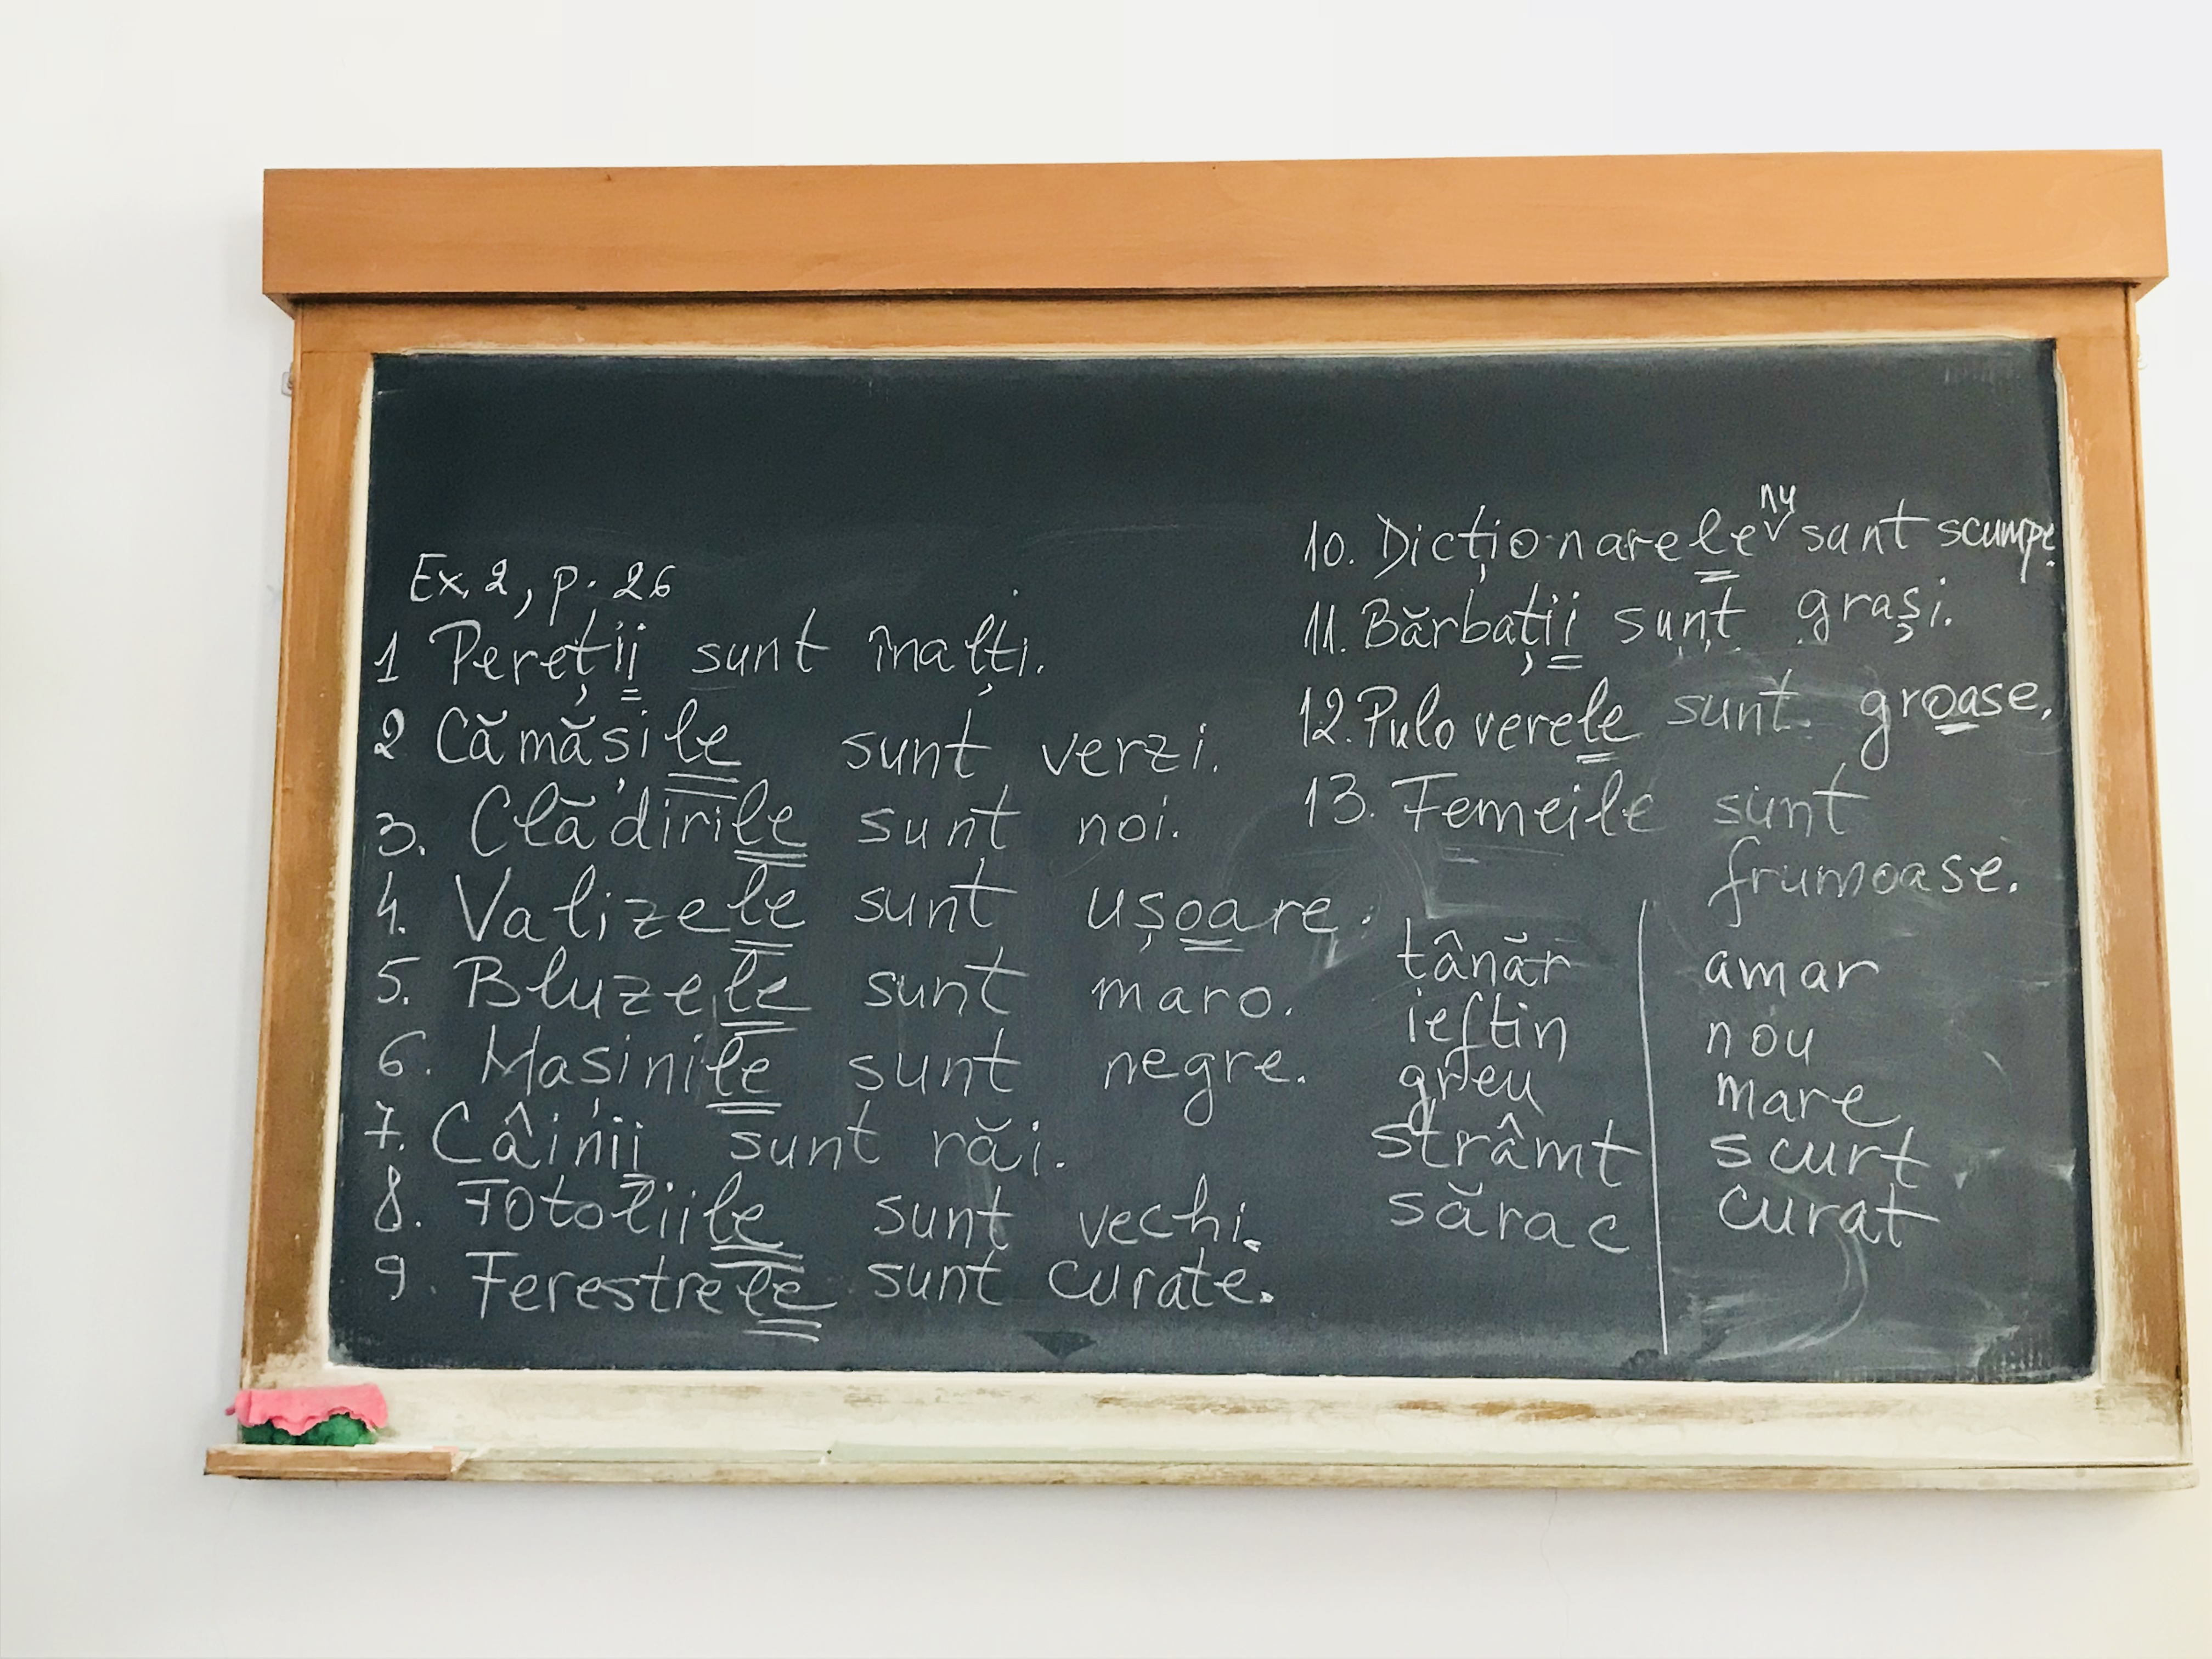 Ex. 2, p. 26
1 Pereții sunt înalți.
2 Cămășile sunt verzi.
3. Clădirile sunt noi.
4. Valizele sunt ușoare.
5. Bluzele sunt maro.
6. Mașinile sunt negre.
7. Câinii sunt răi.
8. Fotoliile sunt vechi.
9. Ferestrele sunt curate.
nu
10. Dicționarele sunt scumpe.
11. Bărbații sunt grași.
12. Puloverele sunt groase.
13. Femeile sunt
frumoase.
tânăr
ieftin
greu
strâmt
sărac
amar
nou
mare
scurt
curat